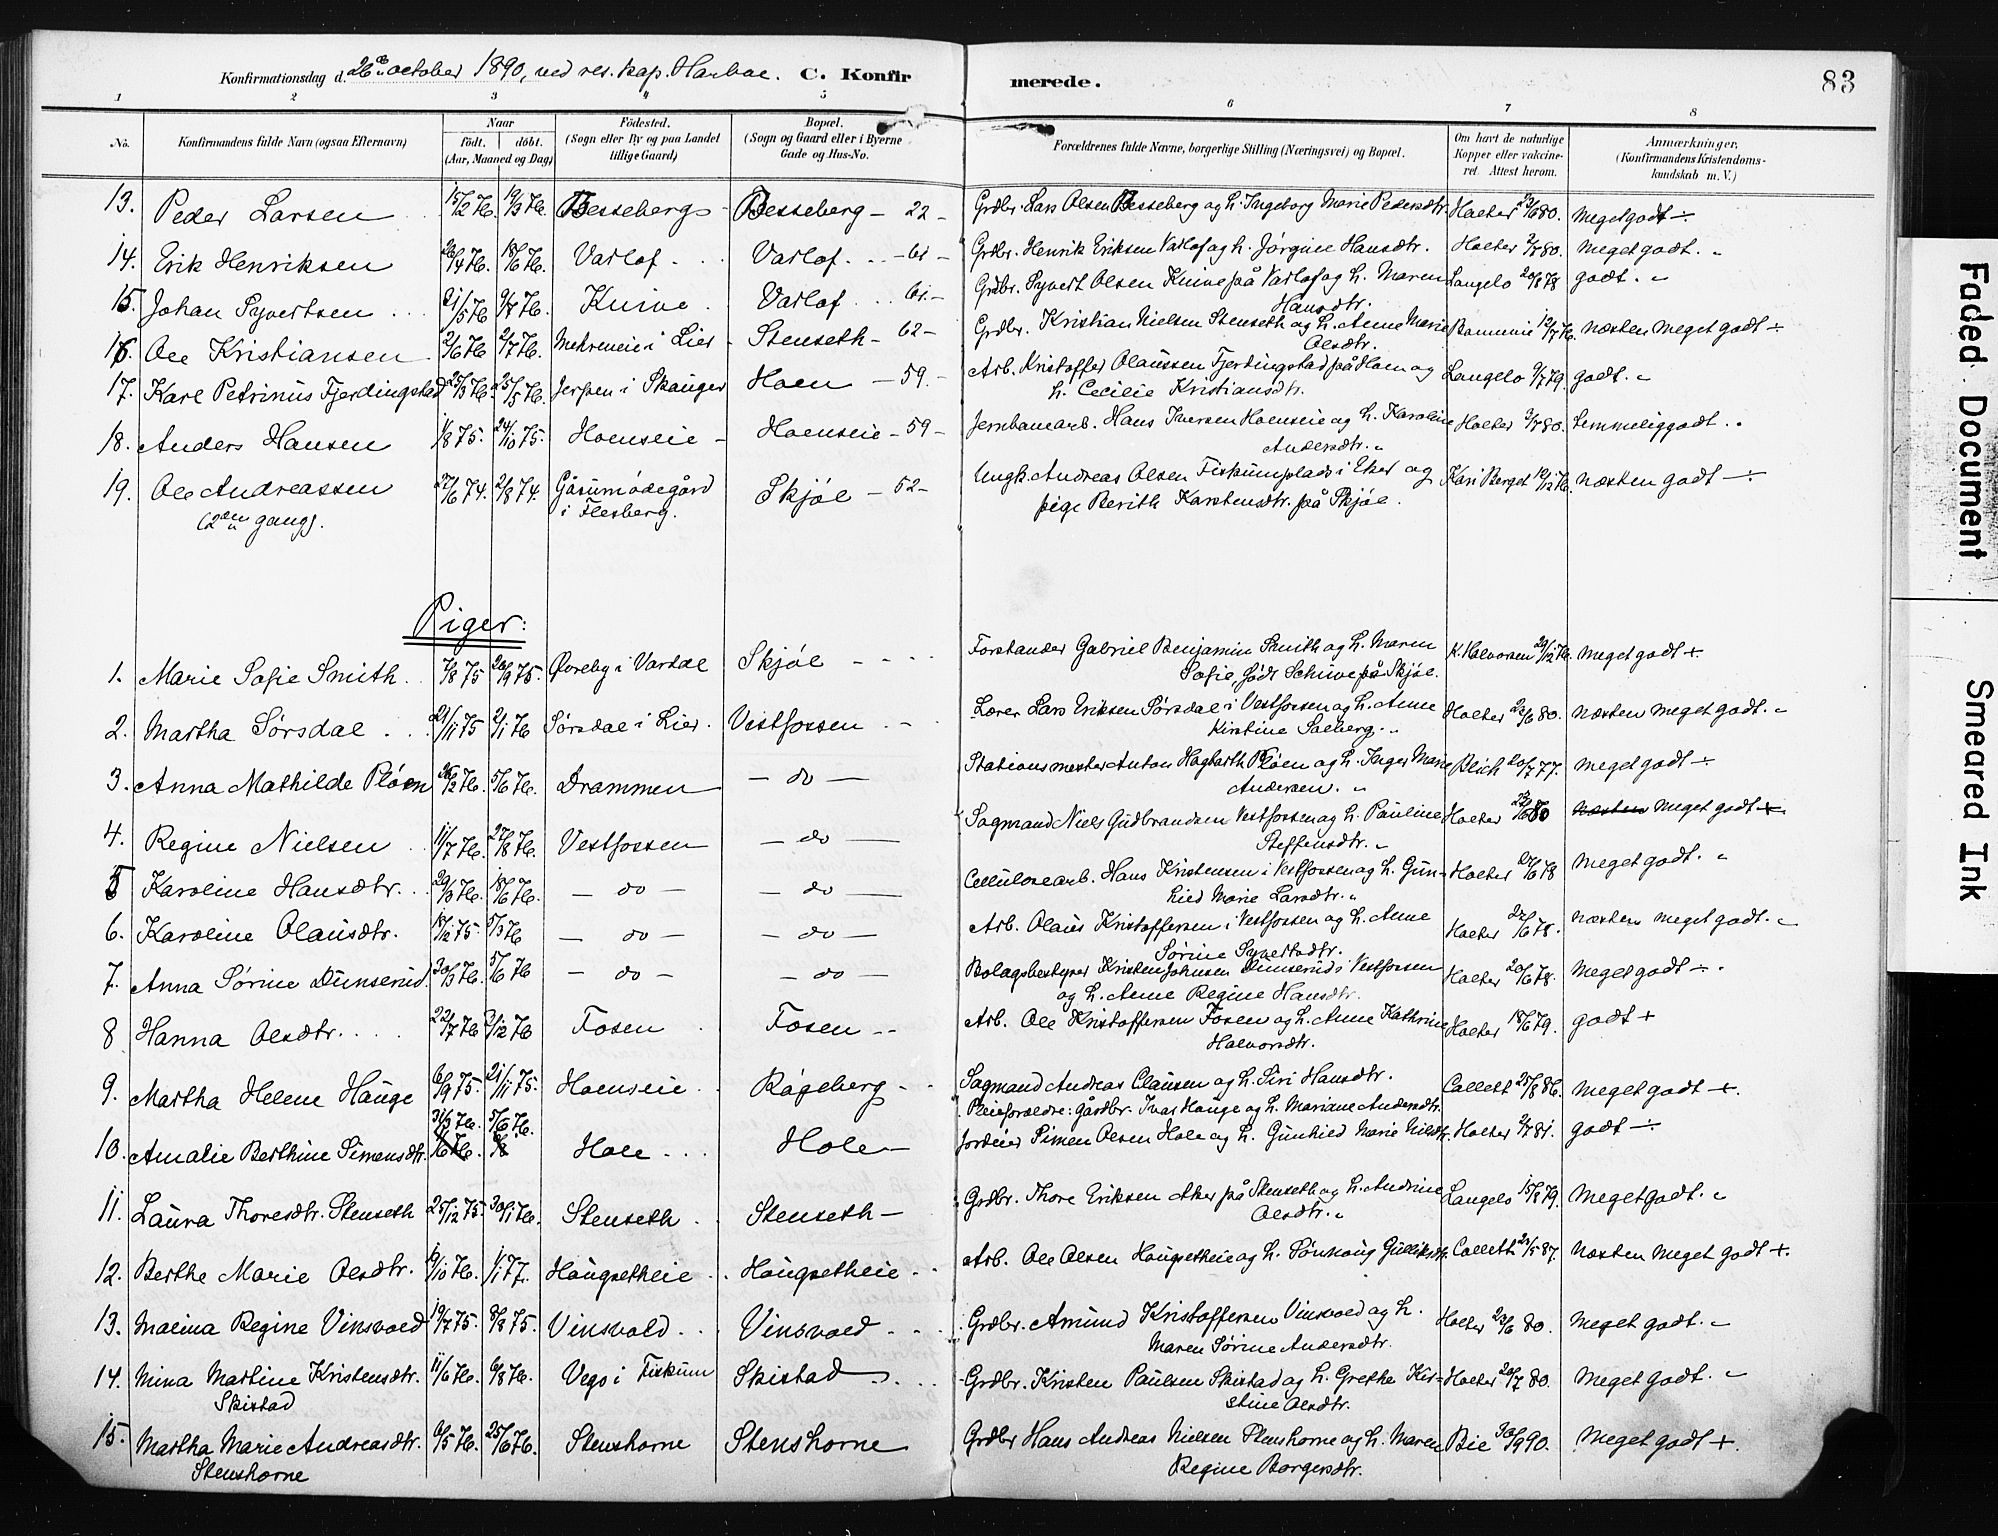 Konfirmationsdag d. 26de october 1890, ved res. kap. Harboe. C. Konfirmerede. 83
1 2 3 4 5 6 7 8
No. Konfirmandens fulde Navn (ogsaa Efternavn) Naar født. døbt. (Aar, Maaned og Dag) Fødested. (Sogn eller By og paa Landet tillige Gaard) Bopæl. (Sogn og Gaard eller i Byerne Gade og Hus-No. Forældrenes fulde Navne, borgerlige Stilling (Næringsvei) og Bopæl. Om havt de naturlige Kopper eller vaccineret. Attest herom. Anmærkninger. (Konfirmandens Kristendomskundskab m. V.)
13. Peder Larsen 15/2 76. 19/3 76. Besseberg - Besseberg - 22 - Grdbr. Lars Olsen Besseberg og h. Ingeborg Marie Pedersdtr. Holter 23/6 80. Meget godt ÷
14. Erik Henriksen 26/4 76. 18/6 76. Varlof Varlof - 61 - Grdbr. Henrik Eriksen Varlof og h. Jørgine Hansdtr. Holter 2/7 80. Meget godt. „
15. Johan Syvertsen 21/5 76 9/7 76. Knive Varlof 61. - Grdbr. Syvert Olsen Knive på Varlof og h. Maren Hansdtr. Langelo 20/8 78 godt. „
16 Ole Kristiansen 2/6 76 2/7 76. Mehreneie i Lier Stenseth - 62 - Grdbr. Kristian Nielsen Stenseth og h. Anne Marie Olsdtr. 12/7 76. næsten meget godt ÷
17. Karl Petrinus Fjerdingstad 25/3 76. 25/5 76. Jerpen i Skauger Hoen - 59. - Arb. Kristoffer Olaussen Fjerdingstad på Hoen og h. Cecilie Kristiansdtr. Langelo 9/7 79. godt. „
18. Anders Hansen 1/8 75. 24/10 75. Hoenseie - Hoenseie - 59 - Jernbanearb. Hans Iversen Hoenseie og h. Karoline Andersdtr. „ Holter 3/7 80. temmelig godt. „
19. Ole Andreassen (2den gang). 27/6 74. 2/8 74. Gåsumødegård i Flesberg. Skjøl - 52 - Ungk. Andreas Olsen Fiskumplads i Eker og pige Berith Karstensdtr. på Skjøl. Kari Berget 12/12 76. næsten godt ÷
Piger:
1. Marie Sofie Smith 7/8 75 26/9 75. Øvreby i Vardal Skjøl - - Forstander Gabriel Benjamin Smith og h. Maren Sofie, født Schiwe på Skjøl. K. Halvorsen 29/12 76. Meget godt +
2. Martha Sørsdal 21/11 75 2/1 76 Sørsdal i Lier. Vestfossen - Lærer Lars Eriksen Sørsdal i Vestfossen og h. Anne Kirstine Solberg. „ Holter 23/6 80. Næsten meget godt. „
3. Anna Mathilde Pløen 26/2 76. 5/6 76. Drammen - do - Stationsmester Anton Pløen og h. Inger Marie Andersen. „ Blich 20/7 77. meget godt ÷
4. Regine Nielsen 11/7 76. 27/8 76. Vestfossen - do - Sagmand Niels Gudbrandsen Vestfossen og h. Pauline Steffensdtr. „ Holter 23/6 80 næsten Meget godt +
5 Karoline Hansdtr. 29/3 76. 18/6 76. - do - - do - Cellulosearb. Hans Kristensen i Vestfossen og h. Gunhild Marie Larsdtr. „ Holter 27/6 78 Meget godt. „
6. Karoline Olausdtr. 18/12 75. 5/3 76 - do - - do - Arb. Olaus Kristoffersen i Vestfossen og h. Anne Sørine Syvertsdtr. Holter 27/6 78. næsten meget godt. „
7. Anna Sørine Dunserud. 30/3 76. 5/6 76 - do - - do - Bolagsbestyrer Kristen Johnsen Dunserud i Vestfossen og h. Anne Regine Hansdtr. Holter 20/6 78. Meget godt ÷
8 Hanna Olsdtr. 22/7 76 3/12 76 Fosen Fosen - Arb. Ole Kristoffersen Fosen og h. Anne Kathrine Halvorsdtr. Holter 18/6 79. godt +
9. Martha Helene Hauge 6/9 75. 21/11 75. Hoenseie Røgeberg - Sagmand Andreas Clausen og h. Siri Hansdtr. Pleieforældre: Gårdbr. Ivar Hauge og h. Mariane Andersdtr. Collett 25/8 86. Meget godt +
10. Amalie Berthine Simensdtr. 31/3 76. 5/6 76. Hole Hole - Jordeier Simen Olsen Hole og h. Gunhild Marie Nilsdtr. Holter 2/7 81. godt ÷
11. Laura Thoresdtr. Stenseth 25/12 75. 30/1 76. Stenseth Stenseth - Grdbr. Thore Eriksen Aker på Stenseth og h. Andrine Olsdtr. „ Langelo 15/8 79. Meget godt. „
12. Berthe Marie Olsdtr. 19/10 76. 1/1 77. Haugsetheie Haugsetheie Arb. Ole Olsen Haugsetheie og h. Gulliksdtr. Collett 23/5 87. Næsten Meget godt +.
13. Malina Regine Vinsvold 19/7 75. 8/8 75. Vinsvold Vinsvold Grdbr. Amund Kristoffersen Vinsvold og h. Maren Sørine Andersdtr. Holter 23/6 80. Meget godt. „
14. Mina Martine Kristensdtr. Skistad 11/6 76. 6/8 76. Vego i Fiskum Skistad Grdbr. Kristen Paulsen Skistad og h. Grethe Kirstine Olsdtr. Holter 20/7 80. Meget godt. „
15. Martha Marie Andreasdtr. Stenshorne 6/5 76. 25/6 76. Stenshorne Stenshorne Grdbr Hans Andreas Nielsen Stenshorne og h. Maren Regine Borgersdtr. Bie 30/9 90. Meget godt +.
Faded Document
Smeared Ink